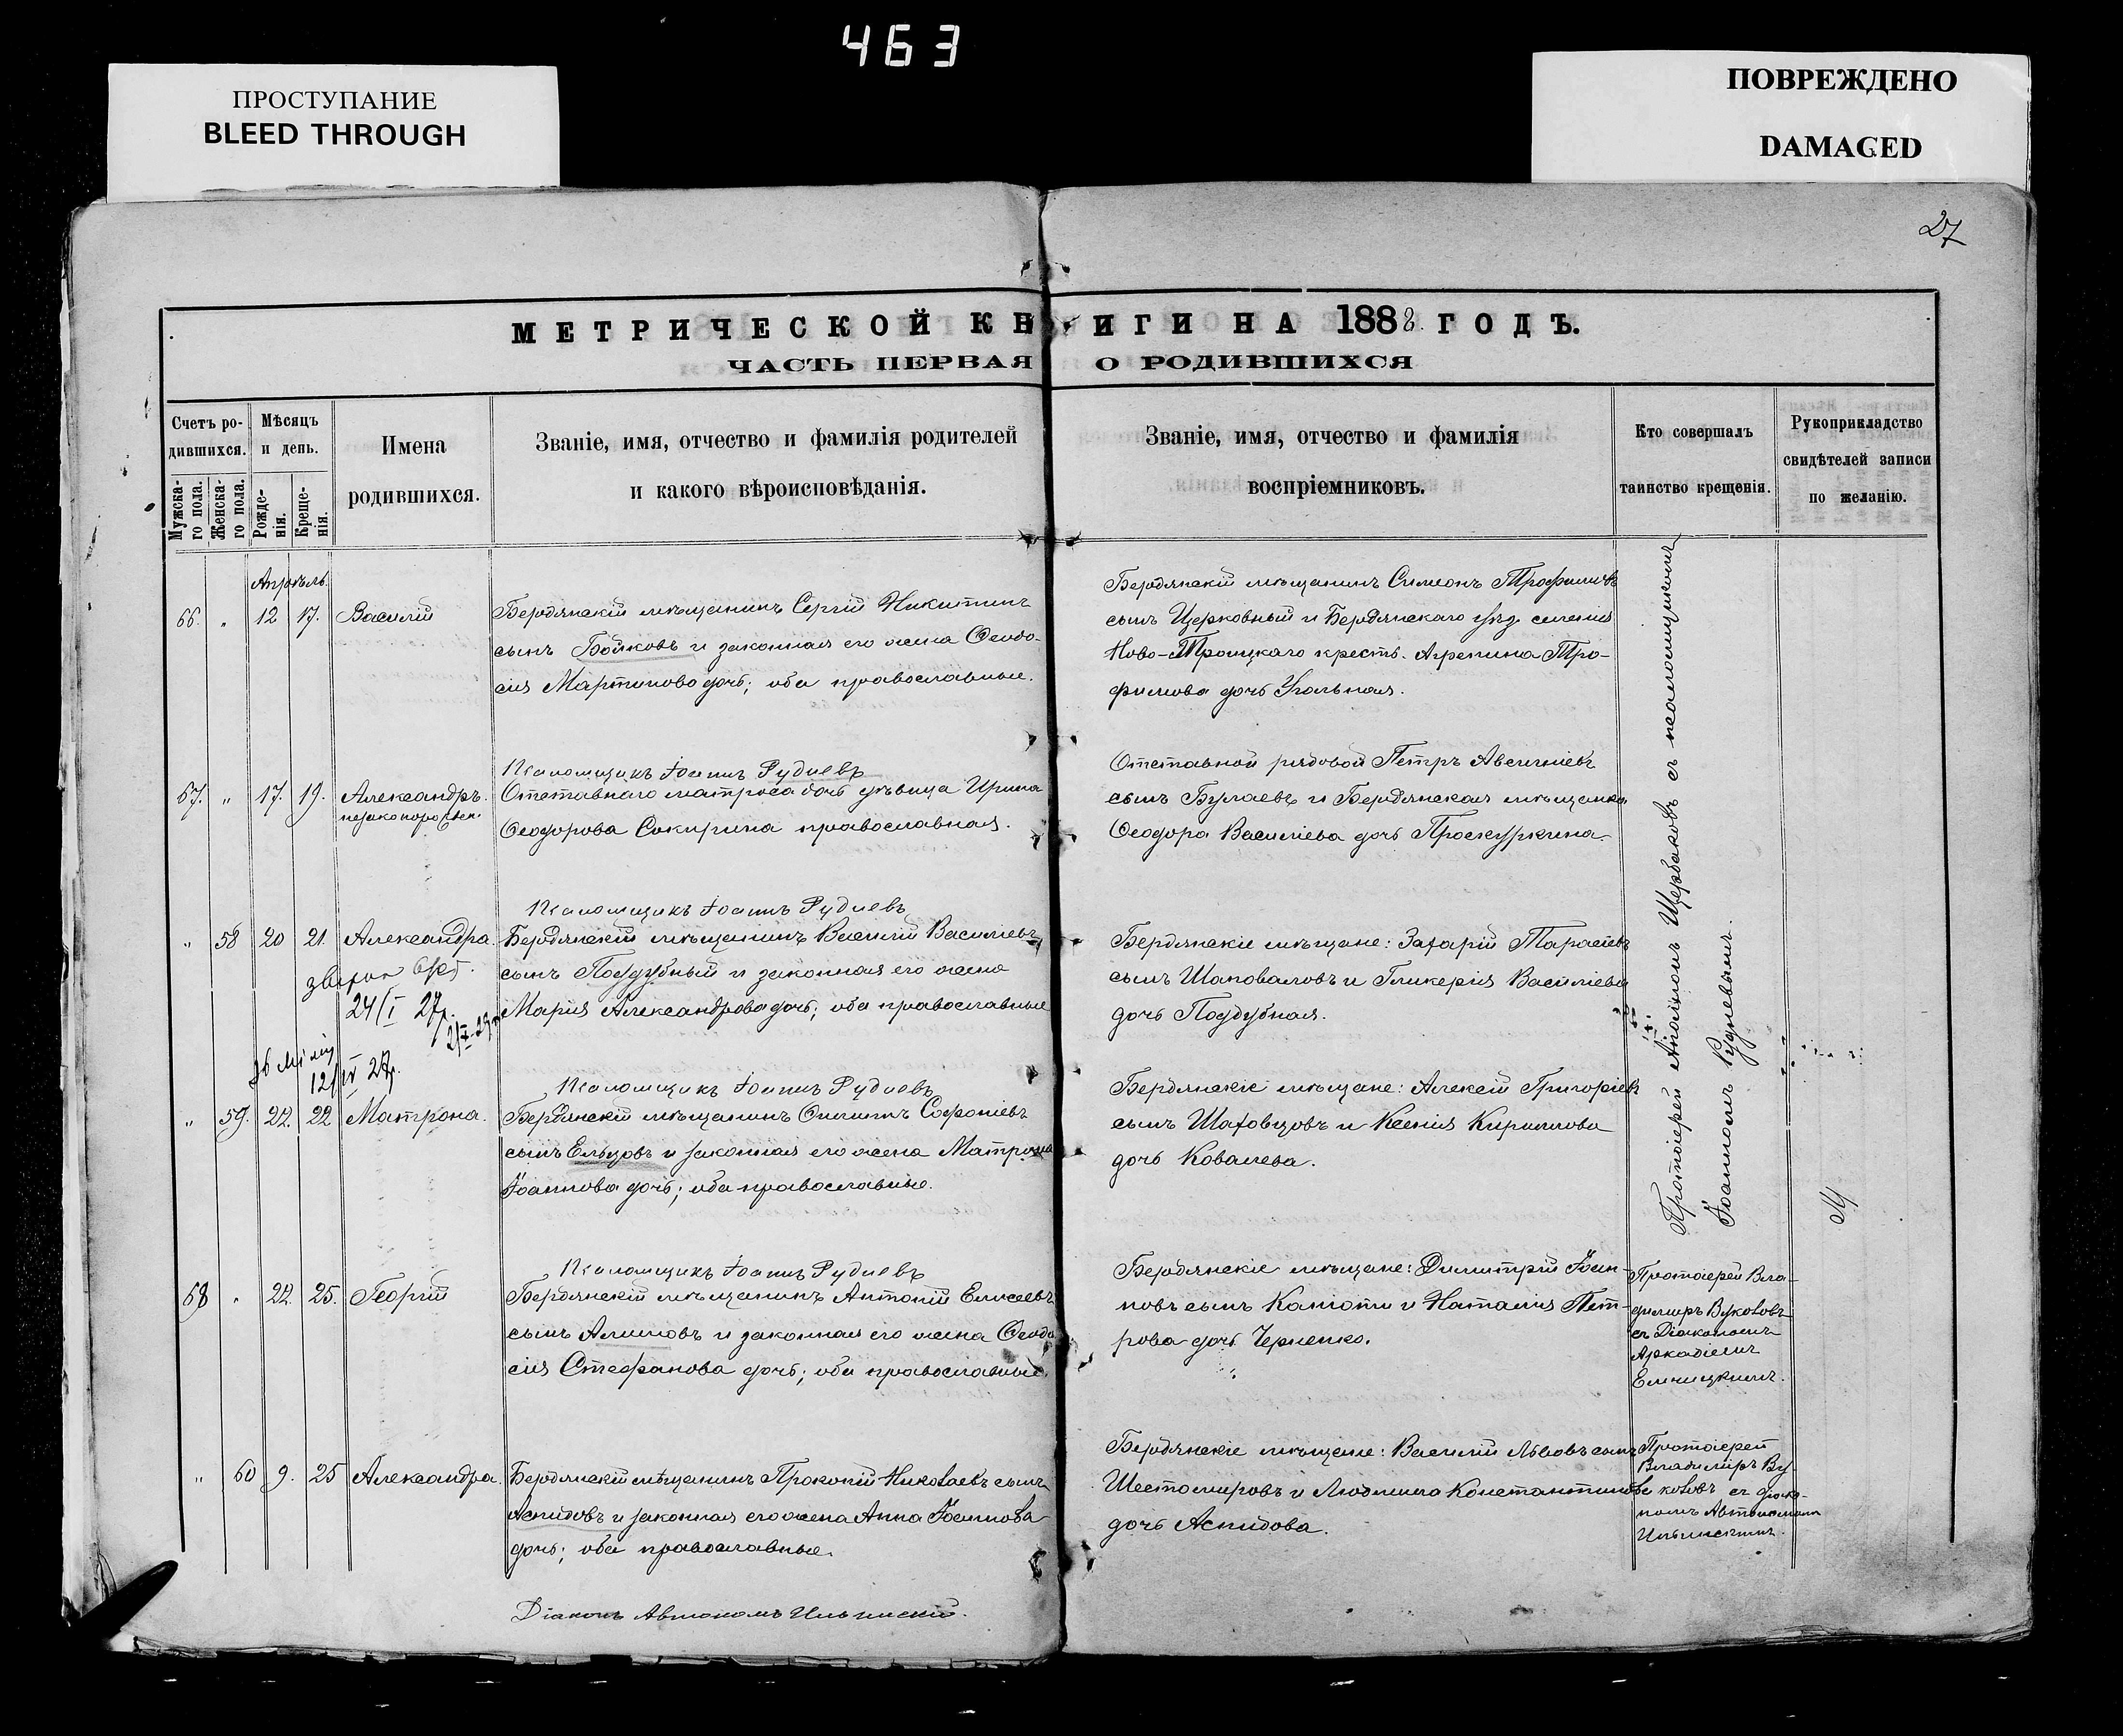 463
ПРОСТУПАНИЕ
BLEED THROUGH
ПОВРЕЖДЕНО
DAMAGED
27
МЕТРИЧЕСКОЙ КНИГИ НА 1888 ГОДЪ.
ЧАСТЬ ПЕРВАЯ О РОДИВШИХСЯ
Счетъ ро-
дившихся.
Мужска-
го пола.
Женска-
го пола.
Мѣсяцъ
и день.
Рожде-
нія.
Креще-
нія.
Имена
родившихся.
Званіе, имя, отчество и фамилія родителей
и какого вѣроисповѣданія.
Званіе, имя, отчество и фамилія
воспріемниковъ.
Кто совершалъ
таинство крещенія.
Рукоприкладство
свидѣтелей записи
по желанію.
Апрѣль.
66. " 12 17. Василій
Бердянскій мѣщанинъ Сергій Никитинъ
сынъ Бойковъ и законная его жена Ѳеодо-
сія Мартинова дочь; оба православные.
Бердянскій мѣщанинъ Симеонъ Трофимовъ
сынъ Церковный и Бердянскаго уѣзд. селенія
Ново-Троицкаго кресть. Агрепина Тро-
фимова дочь Угольная.
Псаломщикъ Іоаннъ Рудневъ
67. " 17. 19. Александръ.
незаконорожден.
Отставнаго матроса дочь дѣвица Ирина
Ѳеодорова Сокирина православная.
Отставной рядовой Петръ Авксентіевъ
сынъ Булаевъ и Бердянская мѣщанка
Ѳеодора Василіева дочь Проскуркина.
Псаломщикъ Іоаннъ Рудневъ
" 58 20 21. Александра.
24/I 27р.
Бердянскій мѣщанинъ Василій Василіевъ
сынъ Поддубный и законная его жена
Марія Александрова дочь; оба православные
Бердянскіе мѣщане: Захарій Тарасіевъ
сынъ Шаповаловъ и Гликерія Василіева
дочь Поддубная.
12/IV 27р.
Псаломщикъ Іоаннъ Рудневъ
" 59. 22. 22 Матрона.
Бердянскій мѣщанинъ Филиппъ Софоніевъ
сынъ Ельцовъ и законная его жена Матрона
Іоаннова дочь; оба православные.
Бердянскіе мѣщане: Алексій Григоріевъ
сынъ Шаховцовъ и Ксенія Кириллова
дочь Ковалева.
Протоіерей Аполлонъ Щербаковъ съ псаломщикомъ
Іоанномъ Рудневымъ.
Псаломщикъ Іоаннъ Рудневъ
68 " 22. 25. Георгій
Бердянскій мѣщанинъ Антоній Елисеевъ
сынъ Алимовъ и законная его жена Ѳеодо
сія Стефанова дочь; оба православные.
Бердянскіе мѣщане: Димитрій Іоан-
новъ сынъ Капіоти и Наталія Пет-
рова дочь Черненко.
Протоіерей Вла-
диміръ Вуковъ
съ Діакономъ
Аркадіемъ
" 60 9. 25 Александра.
Бердянскій мѣщанинъ Прокопій Николаевъ сынъ
Аспидовъ и законная его жена Анна
дочь; оба православные.
Бердянскіе мѣщане: Василій Львовъ сынъ
Шестомировъ и Людмила Константинова
дочь Аспидова.
Протоіерей
Владиміръ Ву
ковъ съ діако-
номъ Автономомъ
Ильинскимъ.
Діаконъ Автономъ Ильинскій.